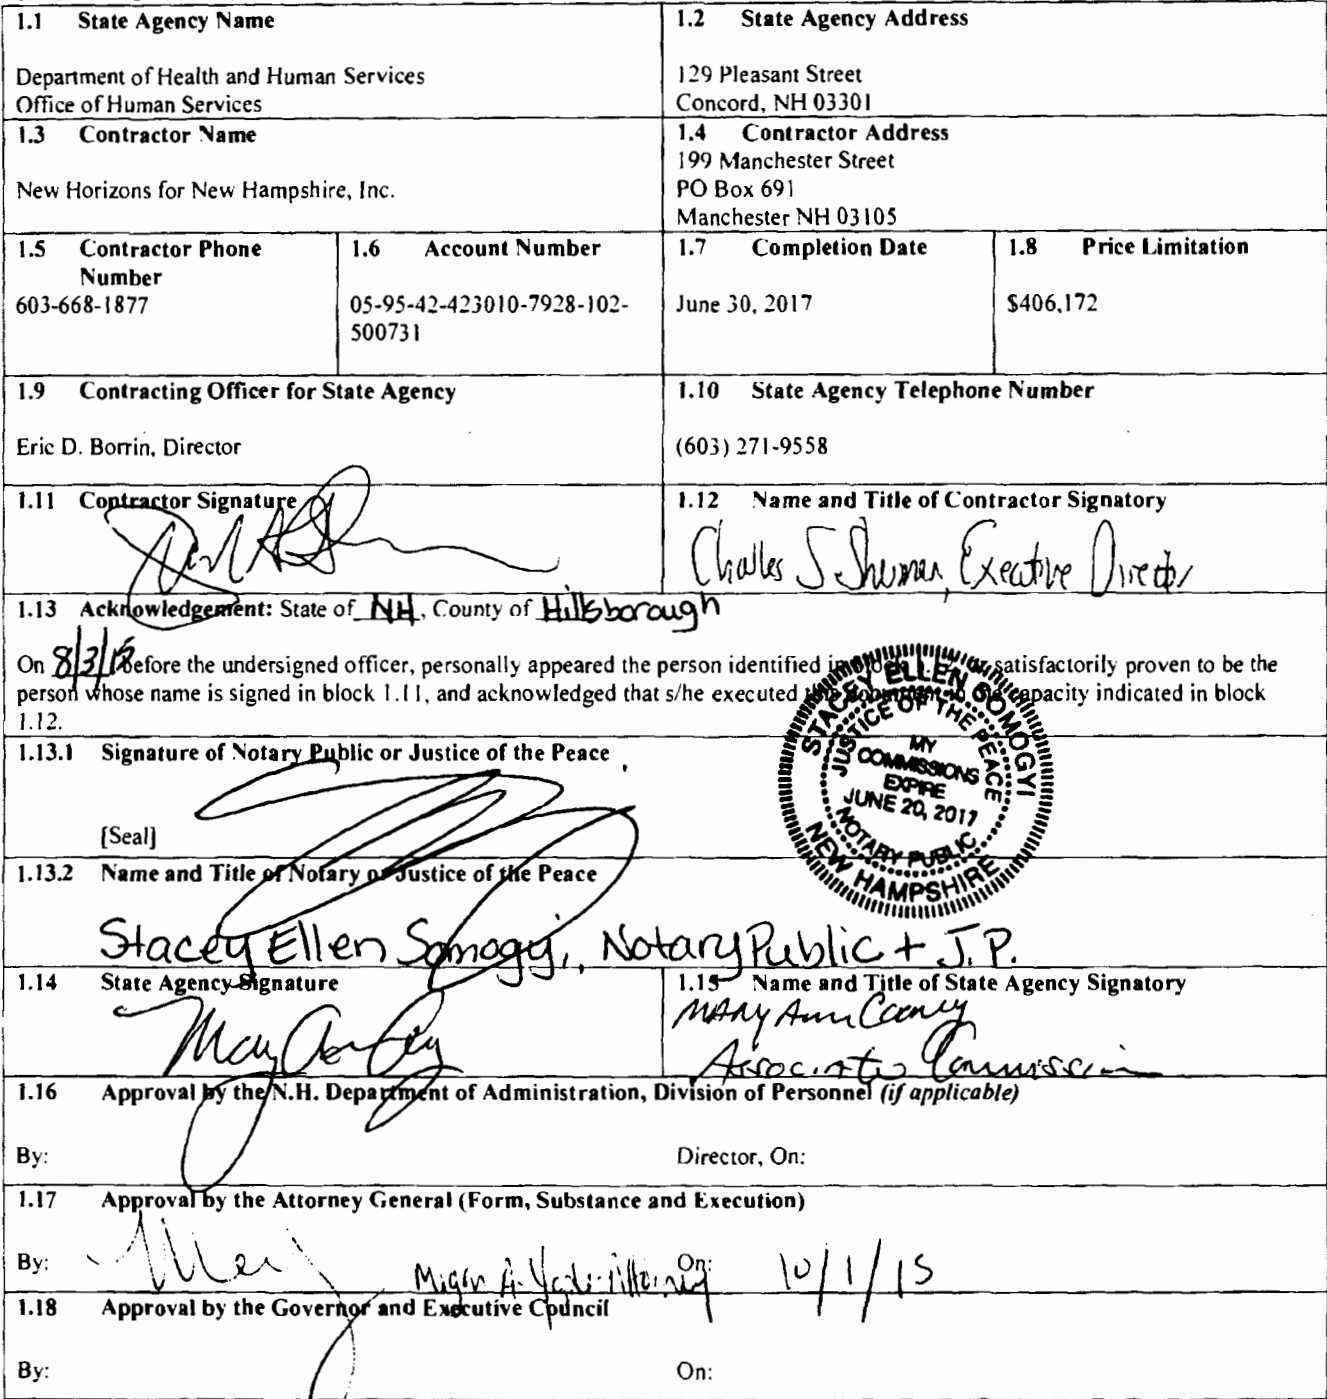 1.1 State Agency Name
Department of Health and Human Services
Office of Human Services
1.2 State Agency Address
129 Pleasant Street
Concord, NH 03301
1.3 Contractor Name
New Horizons for New Hampshire, Inc.
1.4 Contractor Address
199 Manchester Street
PO Box 691
Manchester NH 03105
1.5 Contractor Phone
Number
603-668-1877
1.6 Account Number
05-95-42-423010-7928-102-
500731
1.7 Completion Date
June 30, 2017
1.8 Price Limitation
$406,172
1.9 Contracting Officer for State Agency
Eric D. Borrin, Director
1.10 State Agency Telephone Number
(603) 271-9558
1.11 Contractor Signature
1.12 Name and Title of Contractor Signatory
Charles S Sherman, Executive Director
1.13 Acknowledgement: State of NH, County of Hillsborough
On 8/3/15 before the undersigned officer, personally appeared the person identified in satisfactorily proven to be the
person whose name is signed in block 1.11, and acknowledged that s/he executed capacity indicated in block
1.12.
STACEY ELLEN SOMOGYI
JUSTICE OF THE PEACE
MY
COMMISSIONS
EXPIRE
JUNE 20, 2017
NOTARY PUBLIC
NEW HAMPSHIRE
1.13.1 Signature of Notary Public or Justice of the Peace
[Seal]
1.13.2 Name and Title of Notary or Justice of the Peace
Stacey Ellen Somogyi, Notary Public + J.P.
1.14 State Agency Signature
1.15 Name and Title of State Agency Signatory
Mary Ann Cooney
Associate Commission
1.16 Approval by the N.H. Department of Administration, Division of Personnel (if applicable)
By: Director, On:
1.17 Approval by the Attorney General (Form, Substance and Execution)
By: On: 10/1/15
1.18 Approval by the Governor and Executive Council
By: On: